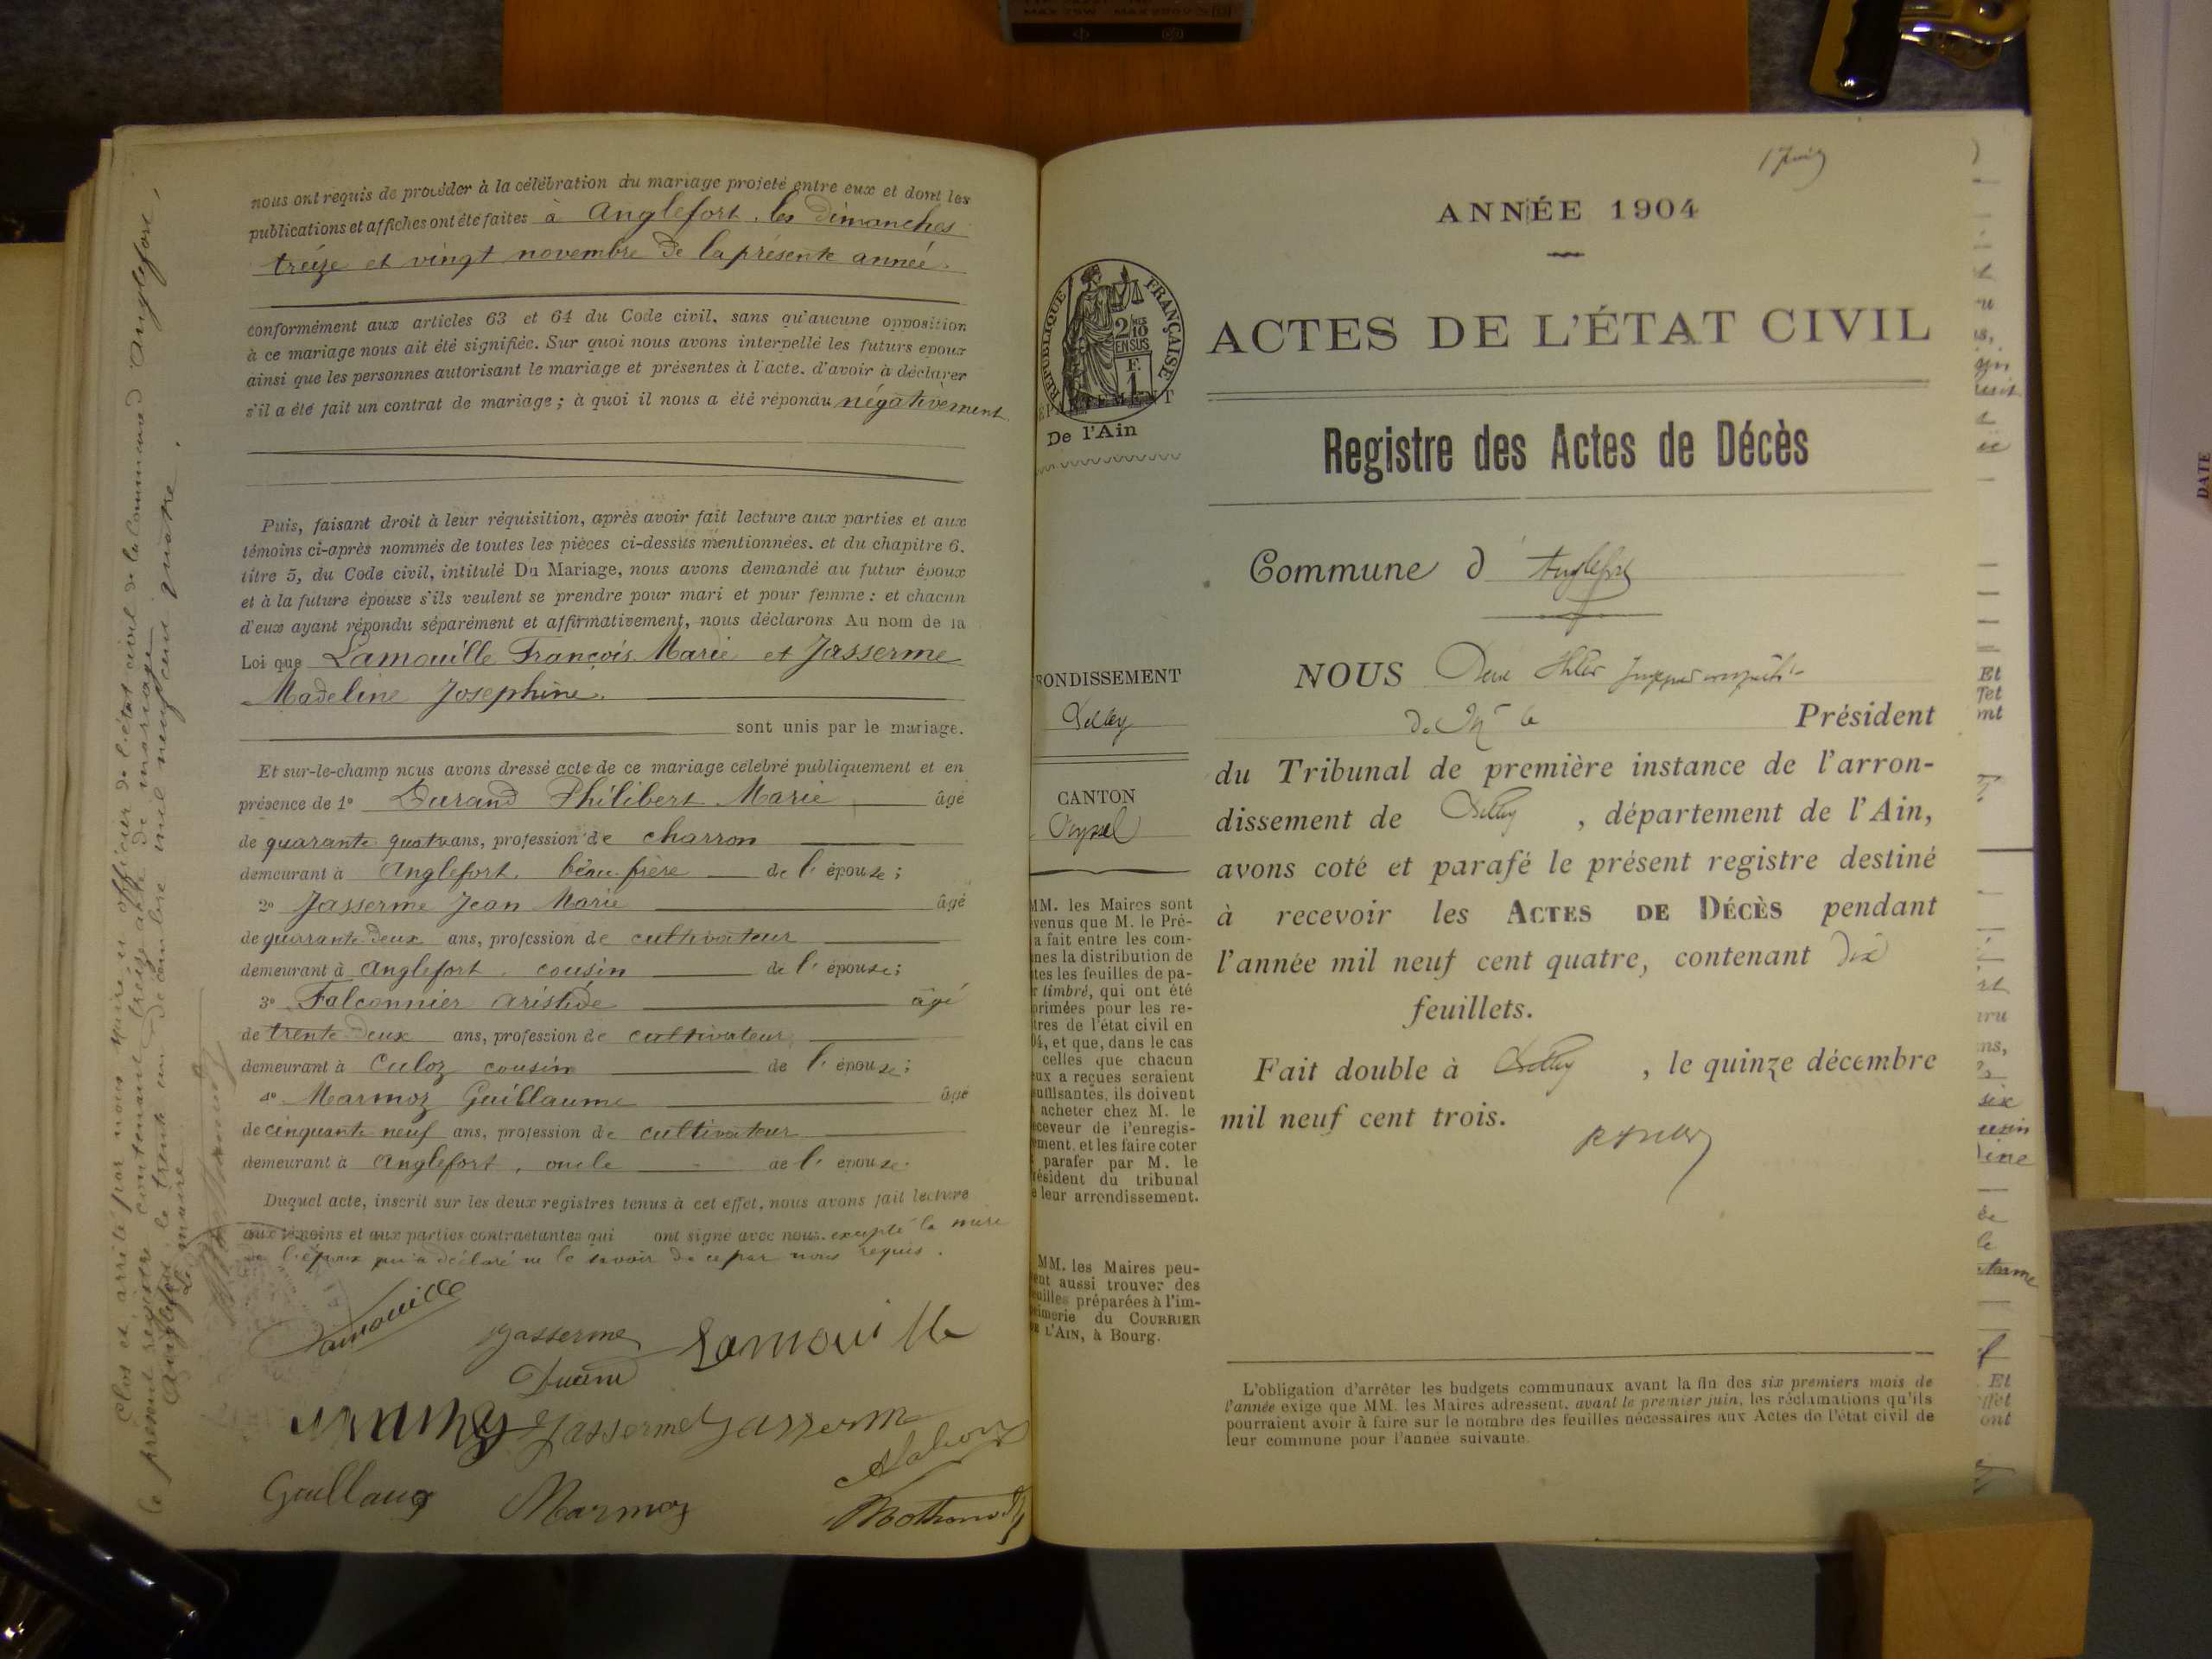 nous ont requis de procéder à la célébration du mariage projeté entre eux et dont les
publications et affiches ont été faites à Anglefort, les dimanches
treize et vingt novembre de la présente année.
conformément aux articles 63 et 64 du Code civil, sans qu'aucune opposition
à ce mariage nous ait été signifiée. Sur quoi nous avons interpellé les futurs époux
ainsi que les personnes autorisant le mariage et présentes à l'acte, d'avoir à déclarer
s'il a été fait un contrat de mariage; à quoi il nous a été répondu négativement
Puis, faisant droit à leur réquisition, après avoir fait lecture aux parties et aux
témoins ci-après nommés de toutes les pièces ci-dessus mentionnées, et du chapitre 6,
titre 5, du Code civil, intitulé Du Mariage, nous avons demandé au futur époux
et à la future épouse s'ils veulent se prendre pour mari et pour femme: et chacun
d'eux ayant répondu séparément et affirmativement, nous déclarons Au nom de la
Loi que Lamouille François Marie et Jasserme
Madeline Josephine.
sont unis par le mariage.
Et sur-le-champ nous avons dressé acte de ce mariage célébré publiquement et en
présence de 1° Durand Philibert Marie âgé
de quarante quatre ans, profession de charron
demeurant à Anglefort, beau-frère de l'épouse;
2° Jasserme Jean Marie âgé
de quarante-deux ans, profession de cultivateur
demeurant à Anglefort, cousin de l'épouse;
3° Falconnier Aristide âgé
de trente-deux ans, profession de cultivateur
demeurant à Culoz cousin de l'épouse;
4° Marmoz Guillaume âgé
de cinquante neuf ans, profession de cultivateur
demeurant à Anglefort, oncle de l'épouse.
Duquel acte, inscrit sur les deux registres tenus à cet effet, nous avons fait lecture
aux témoins et aux parties contractantes qui ont signé avec nous, excepté la mère
de l'époux qui a déclaré ne le savoir de ce par nous requis.
Lamouille
Jasserme
Lamouille
Durand
Jasserme Jasserme
Marmoz
Clos et arrêté par nous Maire et officier de l'état civil de la Commune d'Anglefort,
le présent registre contenant treize actes de mariage.
Anglefort le trente un décembre mil neuf cent quatre.
Le maire
ANNÉE 1904
RÉPUBLIQUE FRANÇAISE
2/10
EN SUS
F.
1
De l'Ain
ACTES DE L'ÉTAT CIVIL
Registre des Actes de Décès
Commune d'Anglefort
RONDISSEMENT
Belley
CANTON
Seyssel
NOUS
Président
du Tribunal de première instance de l'arron-
dissement de Belley, département de l'Ain,
avons coté et parafé le présent registre destiné
à recevoir les ACTES DE DÉCÈS pendant
l'année mil neuf cent quatre, contenant dix
feuillets.
Fait double à Belley, le quinze décembre
mil neuf cent trois.
MM. les Maires sont
venus que M. le Pré-
a fait entre les com-
nes la distribution de
tes les feuilles de pa-
r timbré, qui ont été
primées pour les re-
tres de l'état civil en
04, et que, dans le cas
celles que chacun
eux a reçues seraient
suffisantes, ils doivent
acheter chez M. le
eceveur de l'enregis-
ment, et les faire coter
parafer par M. le
résident du tribunal
e leur arrondissement.
MM. les Maires peu-
ent aussi trouver des
euilles préparées à l'im-
imerie du COURRIER
DE L'AIN, à Bourg.
L'obligation d'arrêter les budgets communaux avant la fin des six premiers mois de
l'année exige que MM. les Maires adressent, avant le premier juin, les réclamations qu'ils
pourraient avoir à faire sur le nombre des feuilles nécessaires aux Actes de l'état civil de
leur commune pour l'année suivante.
DATE